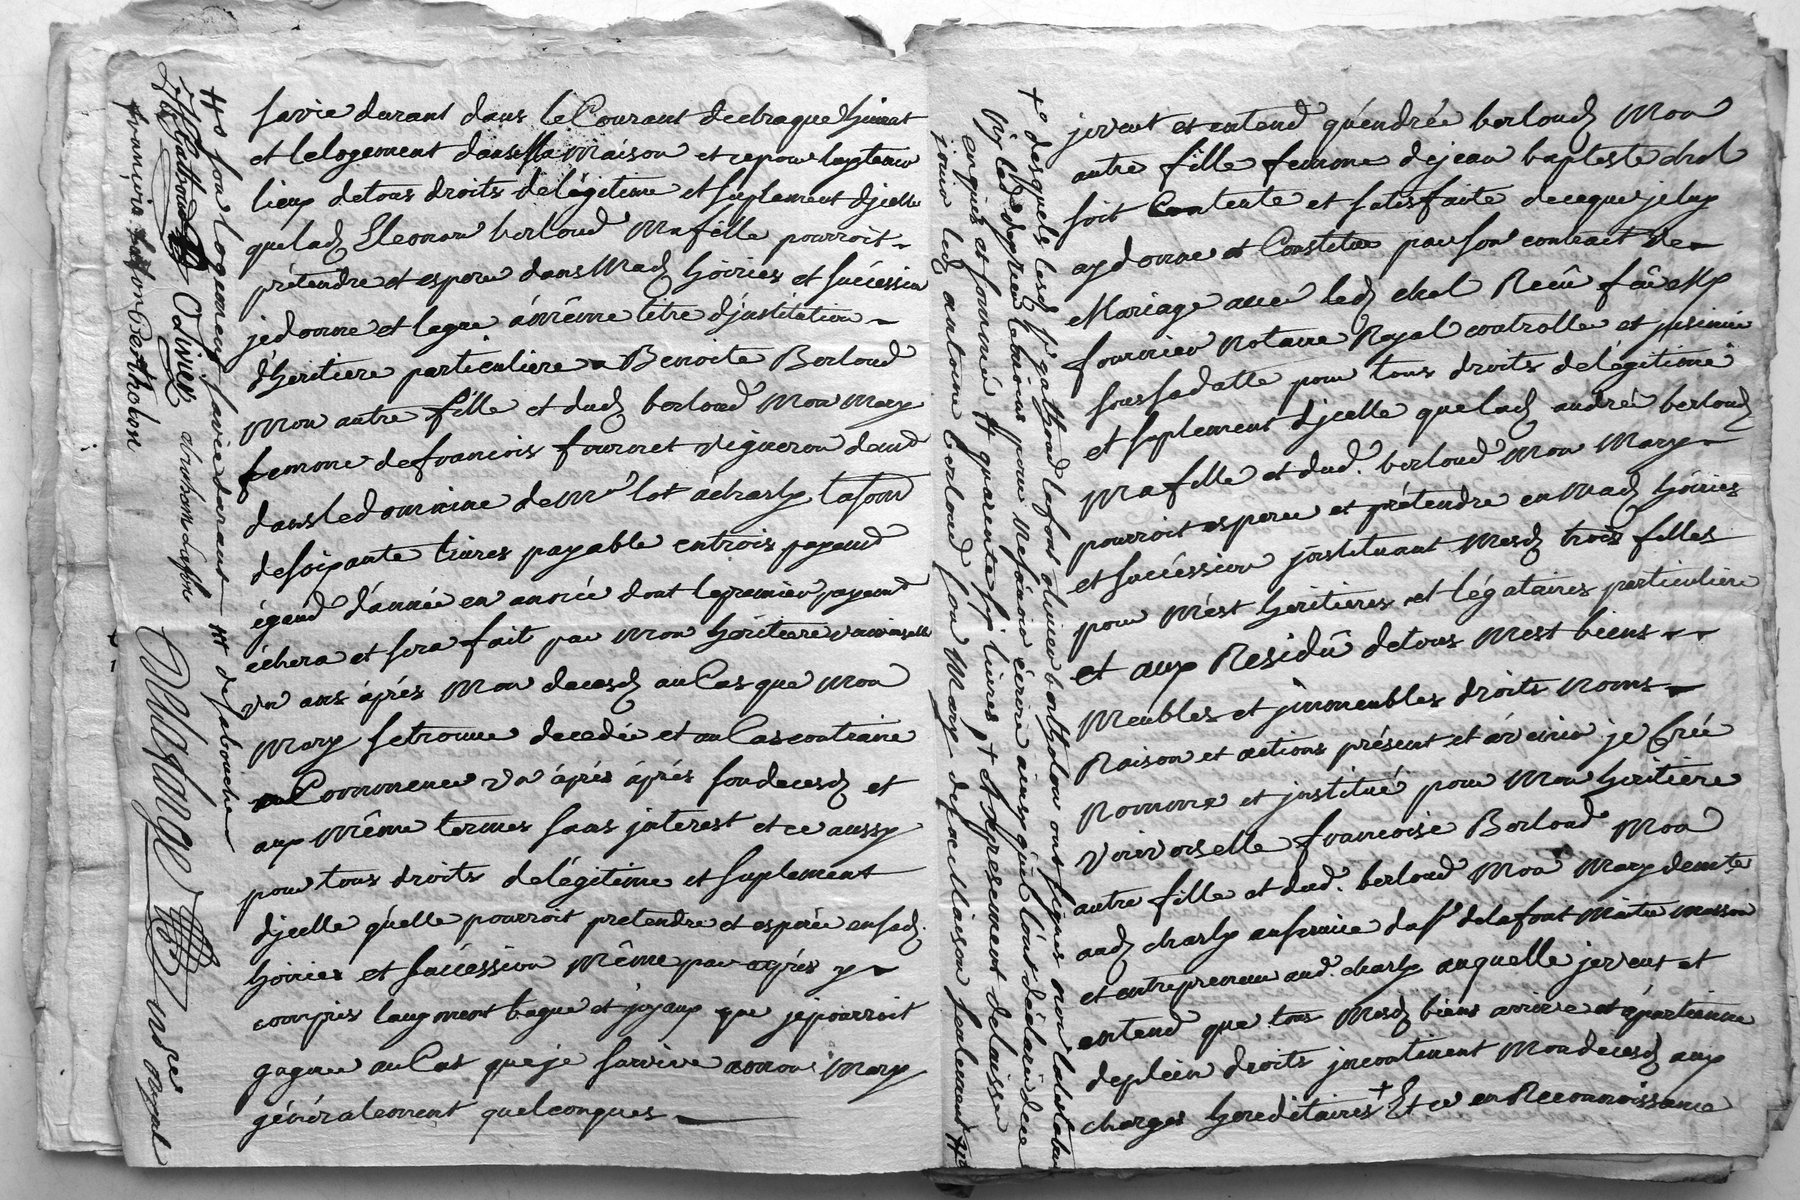 sa vie durant dans le Courant de chaque
et le logement dans Ma Maison et ce pour luy tenir
lieux de tous droits de légitime et suplement d'jcelle
que lad. Eleonor berloud Ma fille pourroit
prétendre et esperer dans Mad. hoiries et succéssion
je donne et legue á même titre d'jnstitution
d'héritiere particuliere a Benoite Berloud
Mon autre fille et dud. berloud Mon Mary
femme de francois fournet vigneron
dans le dommaine de Mr. lot á charly la somme
de soixante livres payable en trois payemt
égaud d'année en année dont le premier payemt
échera et sera fait par Mon héritiere universelle
un ans áprés Mon decesd au Cas que Mon
Mary se trouve decedée et au Cas contraire
Commencer un áprés áprés son decesd et
aux Même termes sans jnterest et ce aussy
pour tous droits de légitime et suplement
d'jcelle qu'elle pourroit pretendre et espérée en sad.
hoiries et succéssion Même par agrés y
compris laugment bague et joyaux que je pourroit
gagner au Cas que je survive amon Mary
généralement quelconques
# son logement sa vie durant ## de sa bouche
Chatboud Olivier anthome lafon
françois Bertholon
Delafarge no.re royal
je veut et entend qu'endrée berloud Mon
autre fille femme de jean bapteste chol
soit Contente et satisfaite de ce que je luy
ay donne et Constitue par son contract de
Mariage avec led. chol Receu
fournier Notaire Royal controlle et jnsinué
sous sa datte pour tous droits de légitime
et suplement d'jcelle que lad. andrée berloud
Ma fille et dud. berloud Mon Mary
pourroit esperer et prétendre en Mad. hoiries
et succéssion jnstituant Mesd. trois filles
pour Mest heritieres et légataires particuliere
et aux Residû de tous Mest biens
Meubles et jmmeubles droits Noms
Raison et actions présent et ávenir je Crée
Nomme et jnstitué pour Mon héritiere
Universelle francoise Berloud Mon
autre fille et dud. berloud Mon Mary demte
aud. charly au service du sr. delafont Maitre Masson
et entrepreneur aud. charly auquelle je veut et
entend que tous Mesd. biens arrive et ápartienne
de plein droits jncontinent Mon decesd aux
charges hereditaires + Et ce en Reconnoissance
+ desquels lesd. lafon olivier berthelon ont signes non la testatrice
ny led. pour ne sçavoir écrire ainsy qu'ils ont déclaré de ce
enquis et sommé # quarente six livres # et delaisse
jouir led. antoine berloud son Mary de Maison seulement